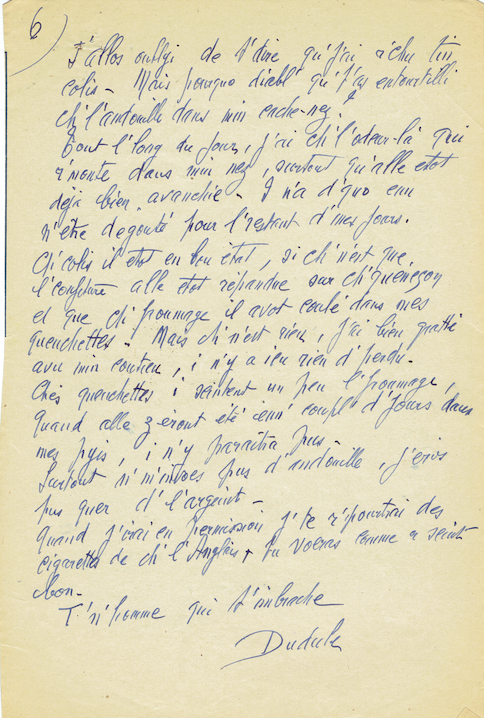 6
J'allos oublyi de t'dire qu'j'ai r'chu tin
colis - Mais pourquo diabl' qu't'as entourtilli
ch'l'andoulle dans min cache-nez ?
Tout l'long du jour, j'ai ch'l'odeur-là qui
r'monte dans min nez, surtout qu'alle étot
déjà bien avanchie - I n'a d'quo enn
n'être dégouté pour l'restant d'mes jours.
Ch'colis il étot en bon état, si ch'n'est que
l'confiture alle étot répandue sur ch'queneçon
et que ch'froumage il avot coulé dans mes
queuchettes - Mais ch'n'est rien, j'ai bien gratté
avu min coutieu, i n'y a ieu rien d'perdu -
Chés queuchettes i seintent un peu l'froumage,
Quand alle z'éront été ienn' coupl' d'jours dans
mes pyis, i n'y paraîtra pus -
Surtout n'm'invoés pus d'andoulle, j'éros
pus quer d'l'argeint -
Quand j'irai en permission j'te r'pourtrai des
cigarettes de ch'l'Anglais, tu voéras comme a seint
bon -
T'n'homme qui t'imbrache
Dudule